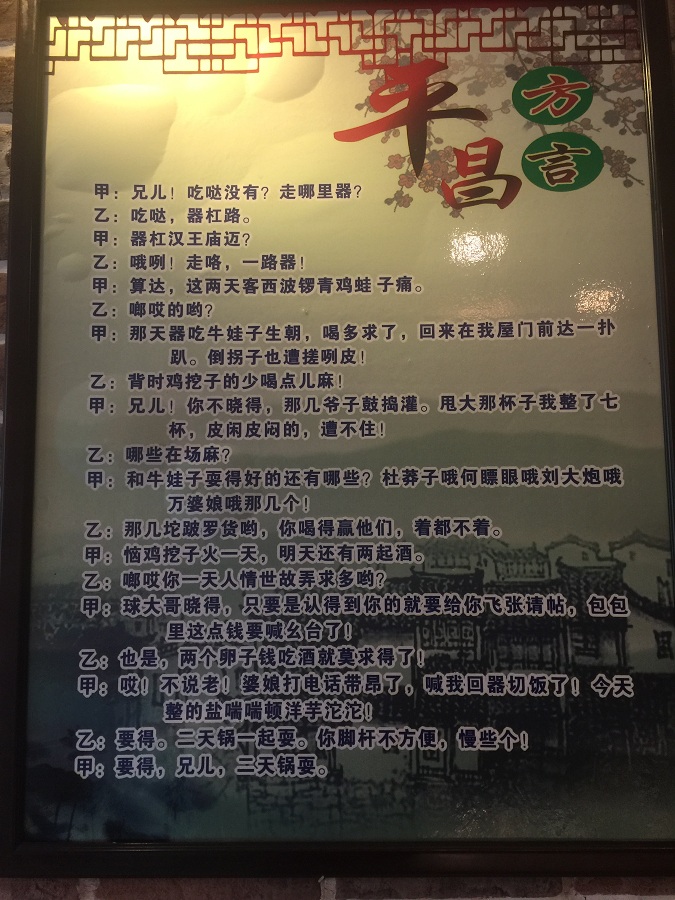 平昌
方言
甲：兄儿！吃哒没有？走哪里器？
乙：吃哒，器杠路。
甲：器杠汉王庙迈？
乙：哦咧！走咯，一路器！
甲：算达，这两天客西波锣青鸡蛙子痛。
乙：啷哎的哟？
甲：那天器吃牛娃子生朝，喝多求了，回来在我屋门前达一扑
趴。倒拐子也遭搓咧皮！
乙：背时鸡挖子的少喝点儿麻！
甲：兄儿！你不晓得，那几爷子鼓捣灌。甩大那杯子我整了七
杯，皮闲皮闷的，遭不住！
乙：哪些在场麻？
甲：和牛娃子耍得好的还有哪些？杜莽子哦何瞟眼哦刘大炮哦
万婆娘哦那几个！
乙：那几坨跛罗货哟，你喝得赢他们，着都不着。
甲：恼鸡挖子火一天，明天还有两起酒。
乙：啷哎你一天人情世故弄求多哟？
甲：球大哥晓得，只要是认得到你的就要给你飞张请帖，包包
里这点钱要喊幺台了！
乙：也是，两个卵子钱吃酒就莫求得了！
甲：哎！不说老！婆娘打电话带昂了，喊我回器切饭了！今天
整的盐喘喘顿洋芋沱沱！
乙：要得。二天锅一起耍。你脚杆不方便，慢些个！
甲：要得，兄儿，二天锅耍。